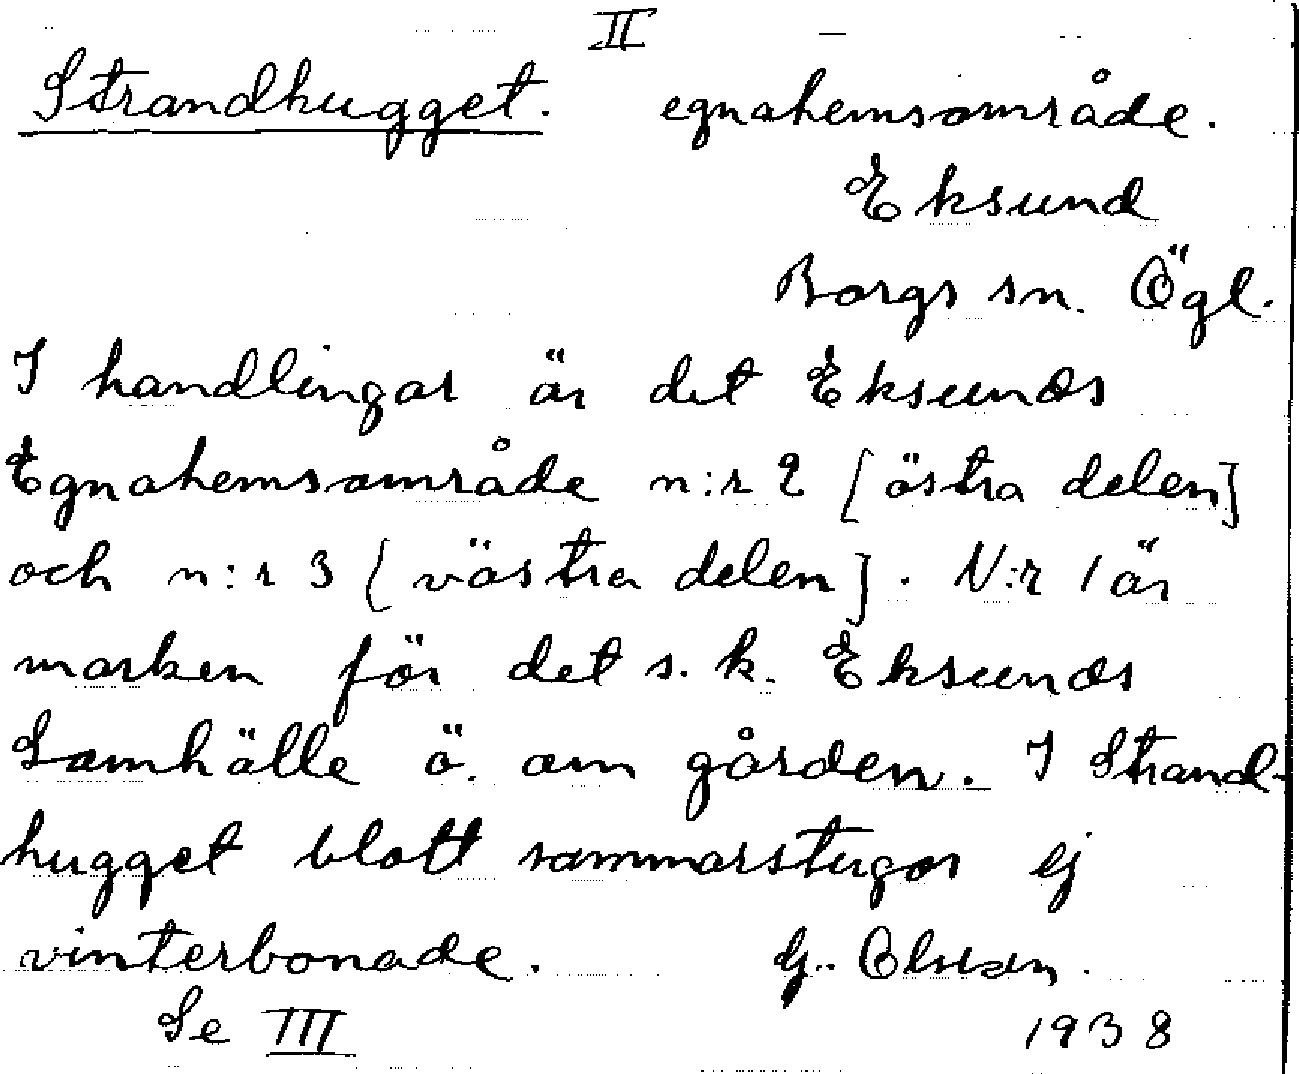 II
Strandhugget. egnahemsområde.
Eksund
Borgs sn. Ögl.
I handlingar är det Eksunds
Egnahemsområde n:r 2 [östra delen]
och n:r 3 [västra delen]. N:r 1 är
marken för det s.k. Eksunds
Samhälle ö. om gården. I Strand-
hugget blott sommarstugor ej
vinterbonade. G. Olsson.
Se III 1938